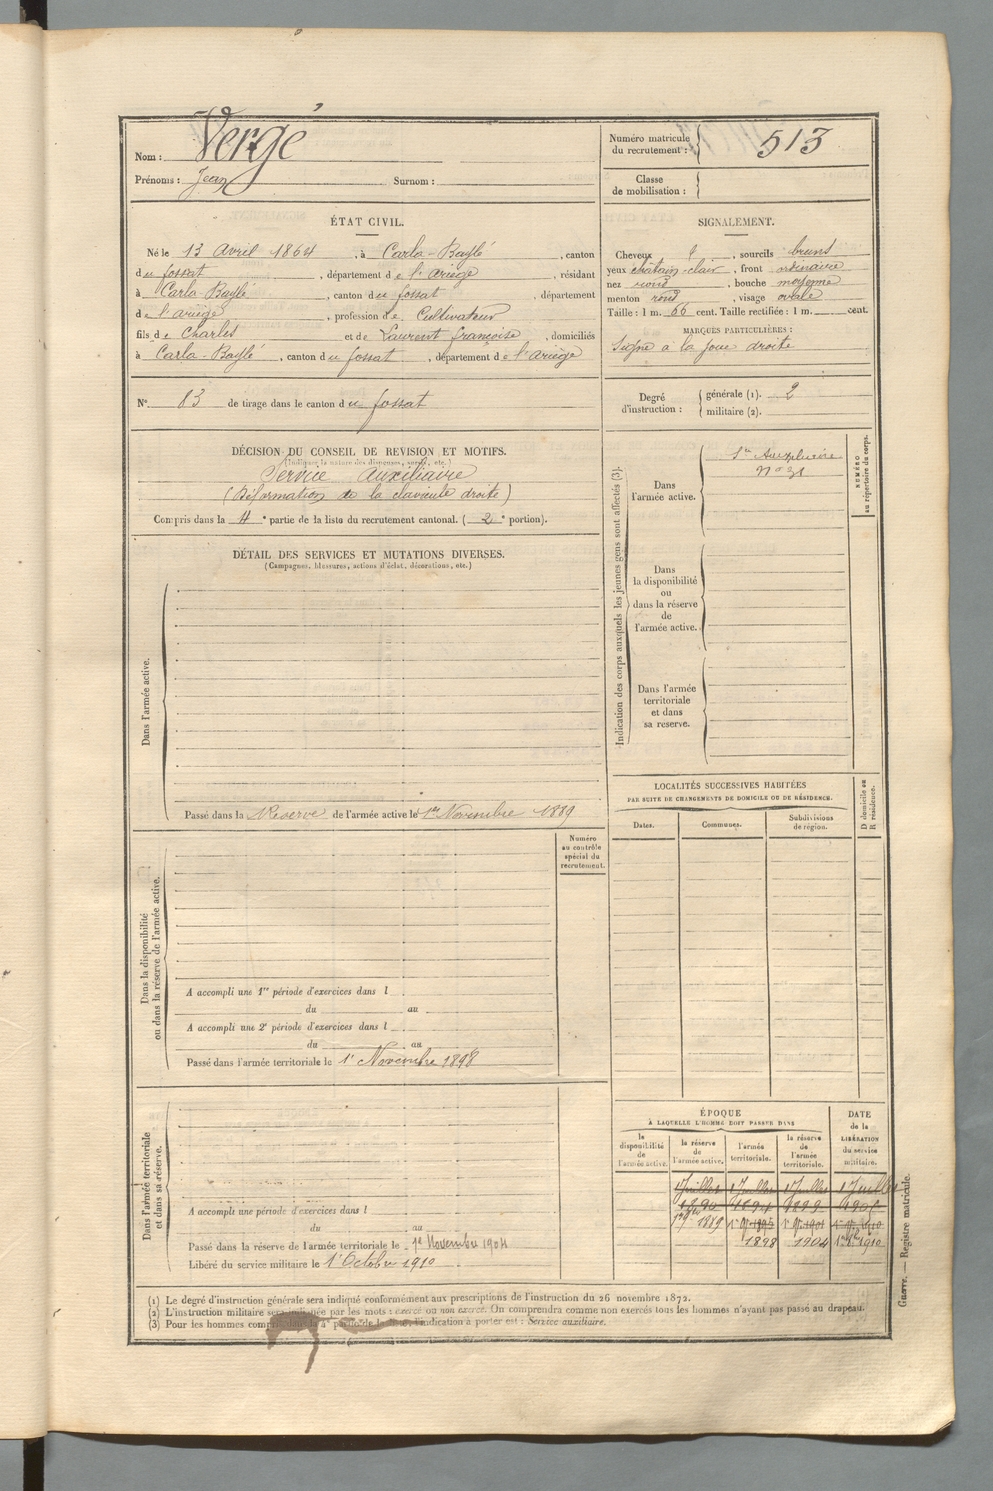 Nom : Vergé
Prénoms : Jean Surnom :
Numéro matricule du recrutement : 513
Classe de mobilisation :
ÉTAT CIVIL.
Né le 13 Avril 1864, à Carla-Baylé, canton
du fossat, département de l'ariège, résidant
à Carla-Baylé, canton du fossat, département
de l'ariège, profession de Cultivateur
fils de Charles et de Laurent françoise, domiciliés
à Carla-Baylé, canton du fossat, département de l'ariège
SIGNALEMENT.
Cheveux , sourcils bruns
yeux châtain-clair, front ordinaire
nez rond, bouche moyenne
menton rond, visage ovale
Taille : 1 m. 66 cent. Taille rectifiée : 1 m. cent.
MARQUES PARTICULIÈRES :
Signe à la joue droite
N° 83 de tirage dans le canton du fossat
Degré d'instruction : générale (1). 2
militaire (2).
DÉCISION DU CONSEIL DE REVISION ET MOTIFS.
(Indiquer la nature des dispenses, sursis, etc.)
Service auxiliaire
(Déformation de la clavicule droite)
Compris dans la 4e partie de la liste du recrutement cantonal. (2e portion).
DÉTAIL DES SERVICES ET MUTATIONS DIVERSES.
(Campagnes, blessures, actions d'éclat, décorations, etc.)
Dans l'armée active.
Passé dans la Réserve de l'armée active le 1er Novembre 1889
Indication des corps auxquels les jeunes gens sont affectés (3).
Dans l'armée active.
n° 31
Dans la disponibilité ou dans la réserve de l'armée active.
Dans l'armée territoriale et dans sa réserve.
NUMÉRO au répertoire du corps.
LOCALITÉS SUCCESSIVES HABITÉES
PAR SUITE DE CHANGEMENTS DE DOMICILE OU DE RÉSIDENCE.
Dates. Communes. Subdivisions de région.
D domicile ou R résidence.
Dans la disponibilité ou dans la réserve de l'armée active.
Numéro au contrôle spécial du recrutement.
A accompli une 1re période d'exercices dans l
du au
A accompli une 2e période d'exercices dans l
du au
Passé dans l'armée territoriale le 1r Novembre 1898
Dans l'armée territoriale et dans sa réserve.
A accompli une période d'exercices dans l
du au
Passé dans la réserve de l'armée territoriale le 1er Novembre 1904
Libéré du service militaire le 1r Octobre 1910
ÉPOQUE
À LAQUELLE L'HOMME DOIT PASSER DANS
la disponibilité de l'armée active. la réserve de l'armée active. l'armée territoriale. la réserve de l'armée territoriale.
DATE de la LIBÉRATION du service militaire.
1 Juillet 1 Juillet 1 Juillet 1 Juillet
1890 1894 1899
1889 1901 1910
1898 1904 1910
(1) Le degré d'instruction générale sera indiqué conformément aux prescriptions de l'instruction du 26 novembre 1872.
(2) L'instruction militaire sera indiquée par les mots : exercé ou non exercé. On comprendra comme non exercés tous les hommes n'ayant pas passé au drapeau.
(3) Pour les hommes compris dans la 4e partie de la liste, l'indication à porter est : Service auxiliaire.
Guerre. — Registre matricule.